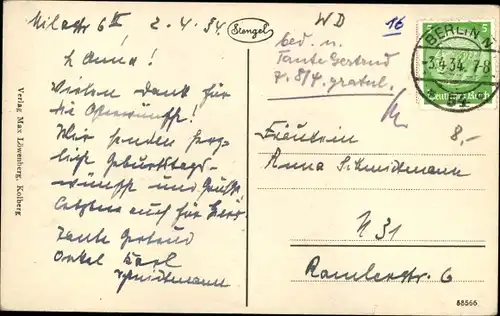 2. 4. 34
Stengel
L Anna!
Vielen Dank für
die Osterwünsche!
Wir senden herz-
liche Geburtstags-
wünsche und Grüße
auch für
Tante Gertrud
Onkel Karl
Schmidtmann
Verlag Max Löwenberg, Kolberg
WD
16
bed. u.
Tante Gertrud
z. 8/4 gratul.
BERLIN N
-3.4.34. 7-8
54
5
Deutsches Reich
8,-
Fräulein
Anna Schmidtmann
N 31
Ramlerstr. 6
68566